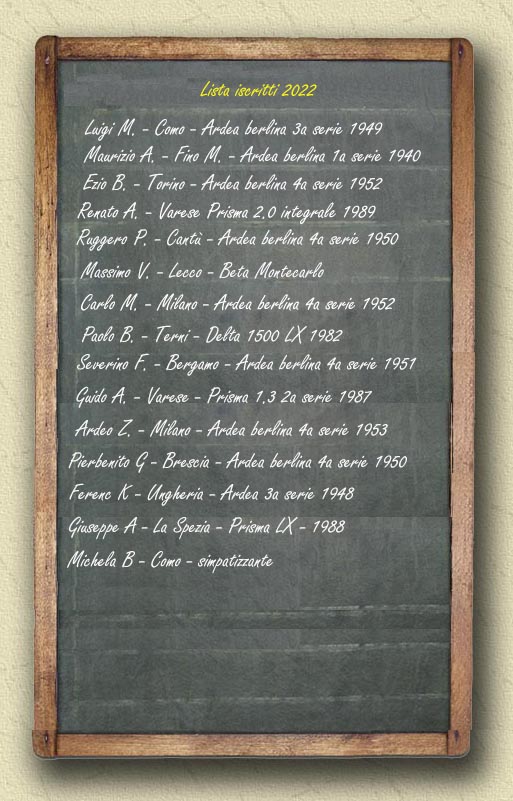 Lista iscritti 2022
Luigi M. - Como - Ardea berlina 3a serie 1949
Maurizio A. - Fino M. - Ardea berlina 1a serie 1940
Ezio B. - Torino - Ardea berlina 4a serie 1952
Renato A. - Varese Prisma 2.0 integrale 1989
Ruggero P. - Cantù - Ardea berlina 4a serie 1950
Massimo V. - Lecco - Beta Montecarlo
Carlo M. - Milano - Ardea berlina 4a serie 1952
Paolo B. - Terni - Delta 1500 LX 1982
Severino F. - Bergamo - Ardea berlina 4a serie 1951
Guido A. - Varese - Prisma 1.3 2a serie 1987
Ardeo Z. - Milano - Ardea berlina 4a serie 1953
Pierbenito G - Brescia - Ardea berlina 4a serie 1950
Ferenc K - Ungheria - Ardea 3a serie 1948
Giuseppe A - La Spezia - Prisma LX - 1988
Michela B - Como - simpatizzante